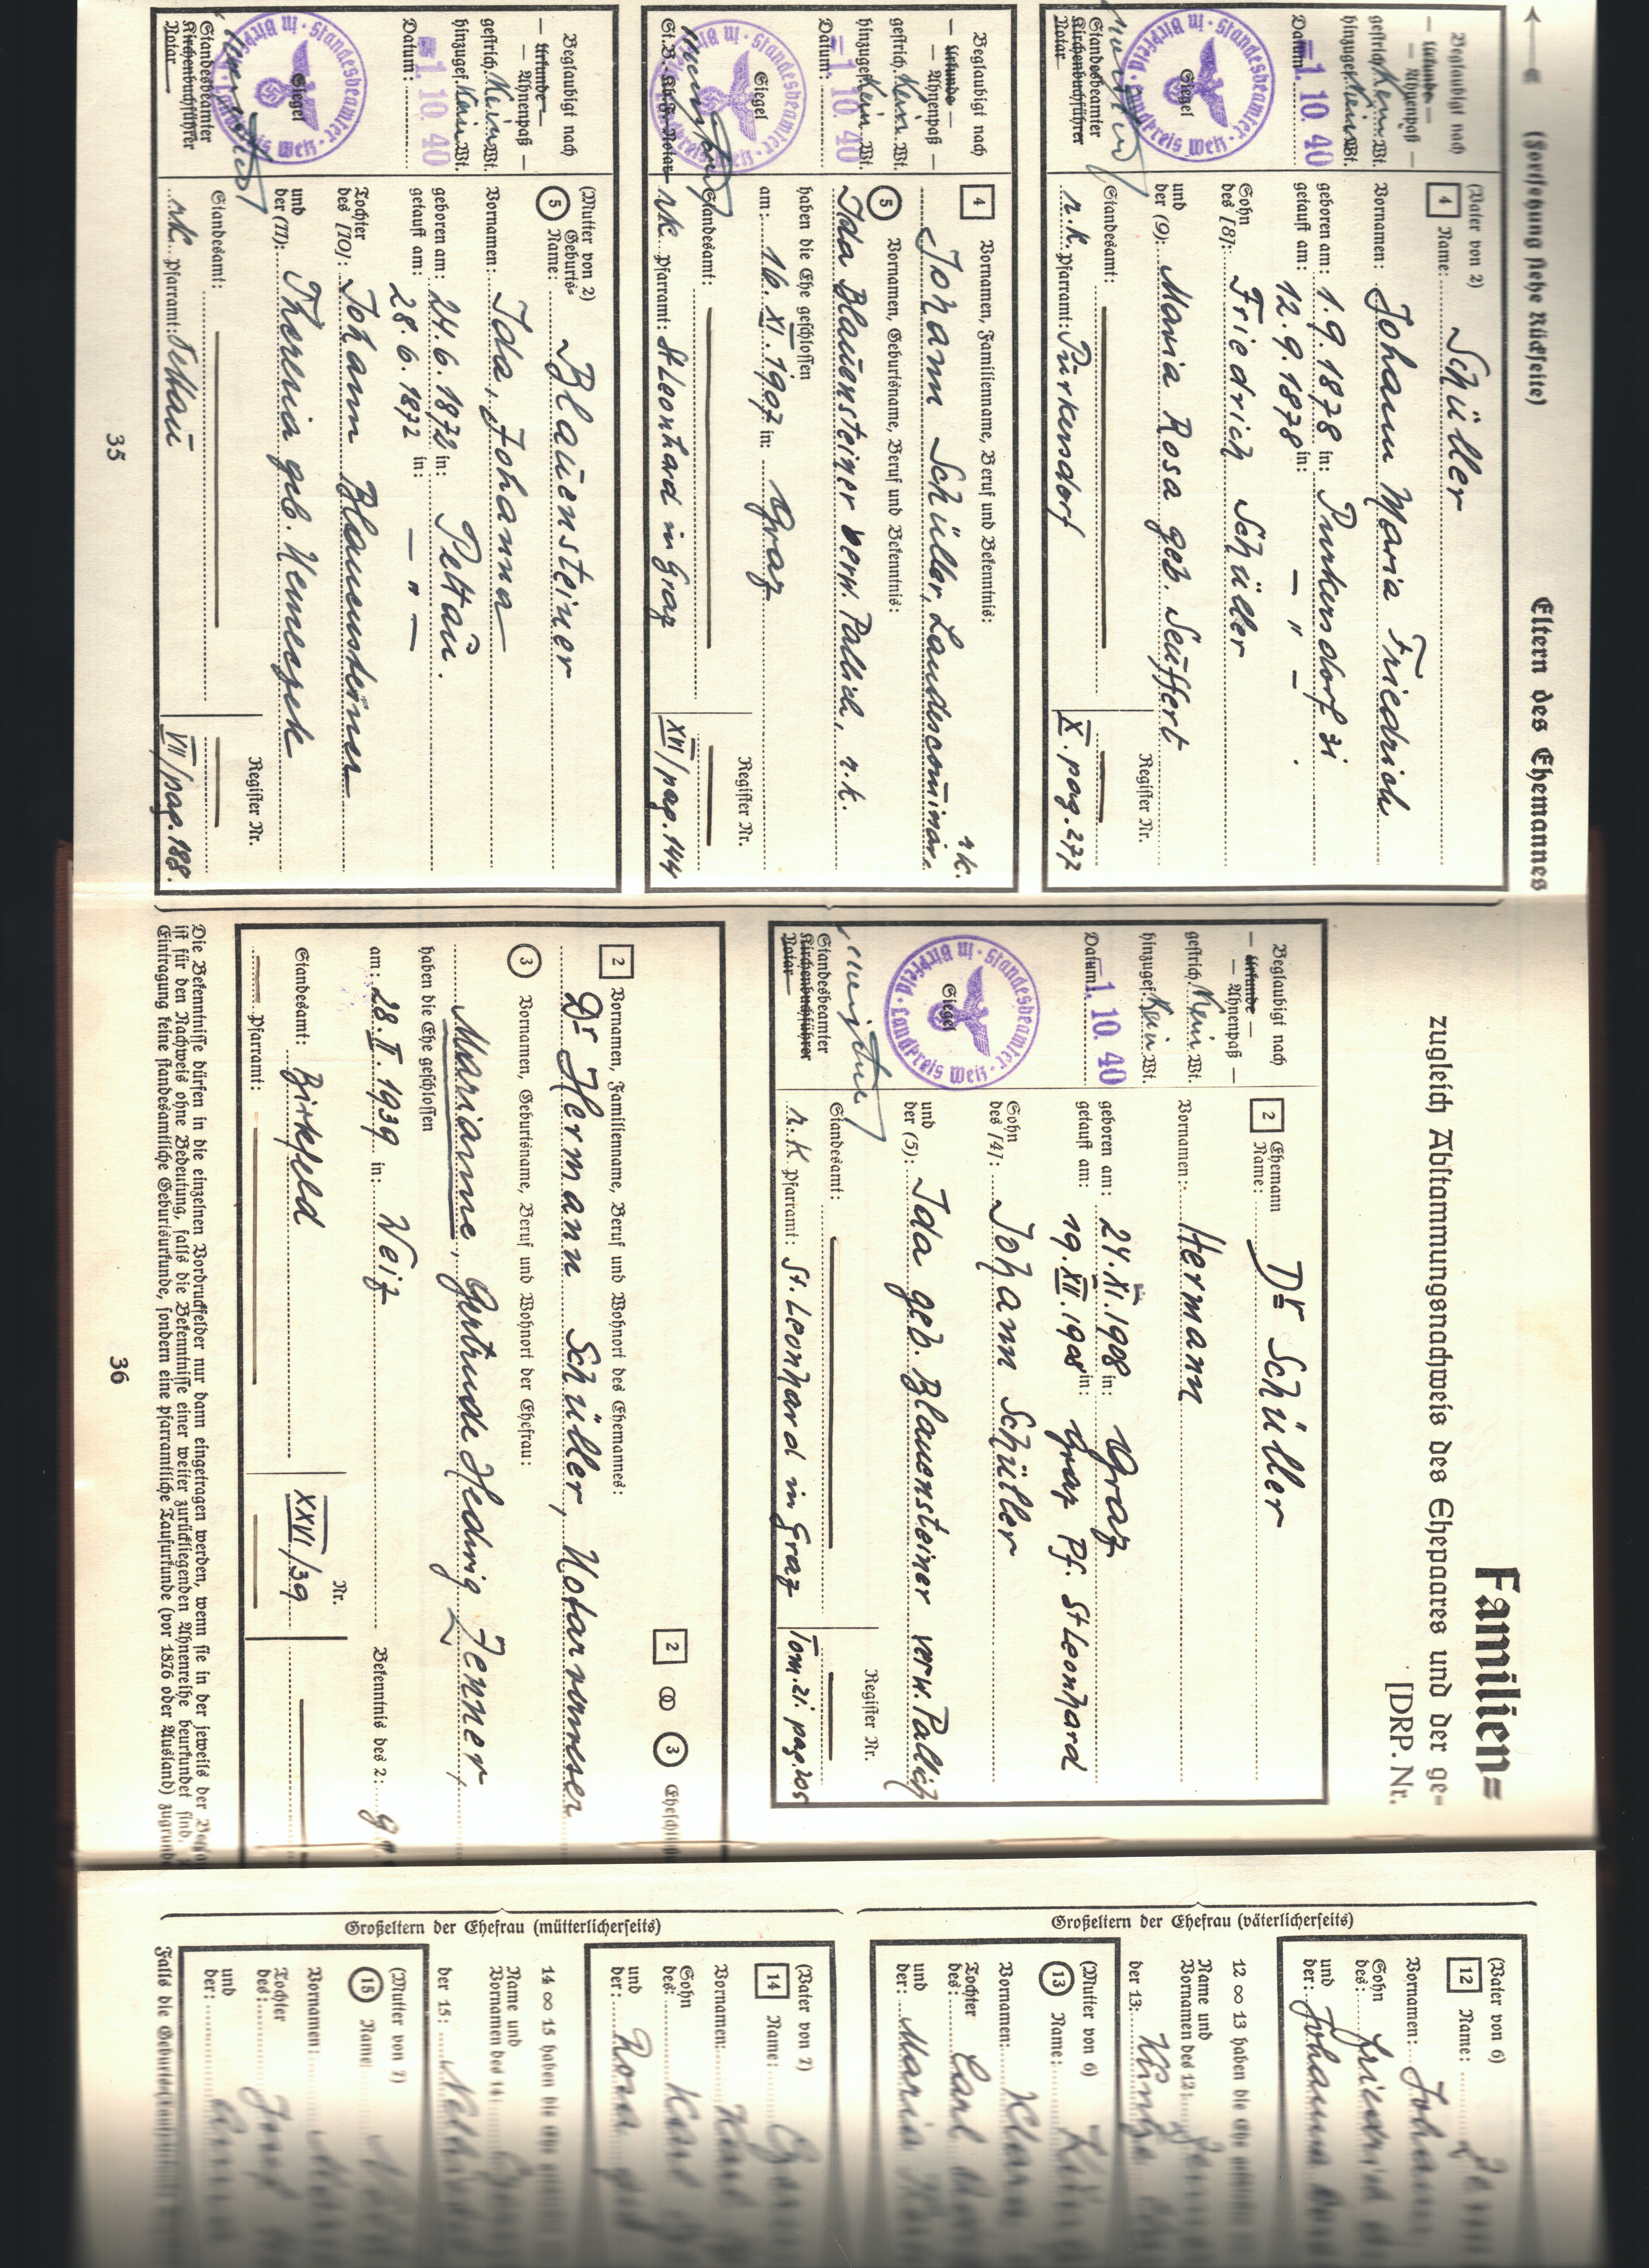 (Fortsetzung siehe Rückseite)
Eltern des Ehemannes
Beglaubigt nach
— Urkunde —
— Ahnenpaß —
gestrich. Kein Wt.
hinzugef. Kein Wt.
Datum: -1. 10. 40
Siegel
Standesbeamter in Birkfeld · Landkreis Weiz
Standesbeamter
Kirchenbuchführer
Notar
(Vater von 2)
4 Name: Schüller
Vornamen: Johann Maria Friedrich
geboren am: 1.9.1878 in: Purkersdorf 31
getauft am: 12.9.1878 in: — " —
Sohn
des [8]: Friedrich Schüller
und
der (9): Maria Rosa geb. Seuffert
Standesamt:
Register Nr.
r.k. Pfarramt: Purkersdorf
X. pag. 277
Beglaubigt nach
— Urkunde —
— Ahnenpaß —
gestrich. Kein Wt.
hinzugef. Kein Wt.
Datum: -1. 10. 40
Siegel
Standesbeamter in Birkfeld · Landkreis Weiz
St.B. Kb.F. Notar
4 Vornamen, Familienname, Beruf und Bekenntnis:
r.k.
Johann Schüller, Landescommissär.
5 Vornamen, Geburtsname, Beruf und Bekenntnis:
Ida Blauensteiner verw. Pallich, r.k.
haben die Ehe geschlossen
am: 16. XI. 1907 in: Graz
Standesamt:
Register Nr.
rk Pfarramt: St Leonhard in Graz
XII/pag. 144
Beglaubigt nach
— Urkunde —
— Ahnenpaß —
gestrich. Kein Wt.
hinzugef. Kein Wt.
Datum: -1. 10. 40
Siegel
Standesbeamter in Birkfeld · Landkreis Weiz
Standesbeamter
Kirchenbuchführer
Notar
(Mutter von 2)
5 Geburts=
Name: Blauensteiner
Vornamen: Ida, Johanna
geboren am: 24.6.1872 in: Pettau.
getauft am: 28.6.1872 in: — " —
Tochter
des [10]: Johann Blauensteiner
und
der (11): Theresia geb.
Standesamt:
Register Nr.
rk Pfarramt: Pettau
VII/pag. 188.
35
Familien=
zugleich Abstammungsnachweis des Ehepaares und der ge=
[DRP. Nr.
Beglaubigt nach
— Urkunde —
— Ahnenpaß —
gestrich. Kein Wt.
hinzugef. Kein Wt.
Datum: -1. 10. 40
Siegel
Standesbeamter in Birkfeld · Landkreis Weiz
Standesbeamter
Kirchenbuchführer
Notar
2 Ehemann
Name: Dr Schüller
Vornamen: Hermann
geboren am: 24. XI. 1908 in: Graz
getauft am: 19. XII. 1908 in: Graz Pf. St Leonhard
Sohn
des [4]: Johann Schüller
und
der (5): Ida geb. Blauensteiner verw. Pallich
Standesamt:
Register Nr.
r.k Pfarramt: St. Leonhard in Graz
Tom. 21. pag. 205
2 ∞ 3
2 Vornamen, Familienname, Beruf und Wohnort des Ehemannes:
Dr Hermann Schüller, Notarwesser
3 Vornamen, Geburtsname, Beruf und Wohnort der Ehefrau:
Marianne, Gertrude Hedwig Jenner,
haben die Ehe geschlossen
am: 28. II. 1939 in: Weiz
Bekenntnis des 2:
Standesamt: Birkfeld
Nr.
XXVI/39
Pfarramt:
Die Bekenntnisse dürfen in die einzelnen Vordruckfelder nur dann eingetragen werden, wenn sie in der jeweils der
ist für den Nachweis ohne Bedeutung, falls die Bekenntnisse einer weiter zurückliegenden Ahnenreihe beurkundet sind.
Eintragung keine standesamtliche Geburtsurkunde, sondern eine pfarramtliche Taufurkunde (vor 1876 oder Ausland) zugrunde
36
Großeltern der Ehefrau (väterlicherseits)
(Vater von 6)
12 Name:
Vornamen: Johann
Sohn
des: Friedrich
und
der: Johanna
12 ∞ 13 haben die Ehe
Name und
Vornamen des 12:
der 13:
(Mutter von 6)
13 Name:
Vornamen: Klara
Tochter
des: Carl
und
der: Maria
Großeltern der Ehefrau (mütterlicherseits)
(Vater von 7)
14 Name:
Vornamen: Karl
Sohn
des: Karl
und
der: Rosa
14 ∞ 15 haben die Ehe
Name und
Vornamen des 14:
der 15:
(Mutter von 7)
15 Name:
Vornamen:
Tochter
des: Josef
und
der: Anna
Falls die